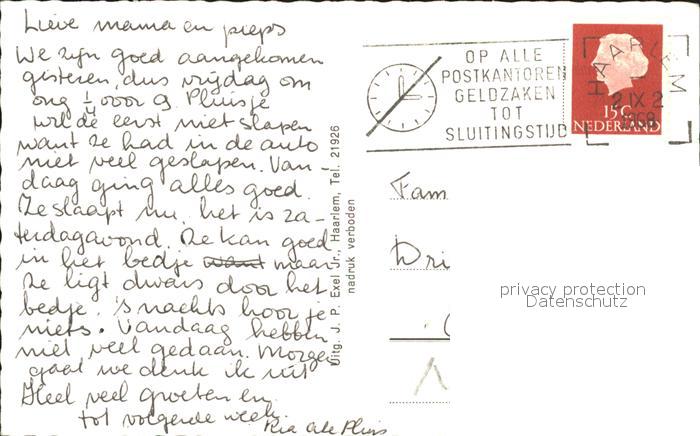 Lieve mama en pieps
We zijn goed aangekomen
gisteren, dus vrijdag om
ong ¼ voor 9. Pluisje
wilde eerst niet slapen
want ze had in de auto
niet veel geslapen. Van-
daag ging alles goed.
Ze slaapt nu, het is za-
terdagavond. Ze kan goed
in het bedje want maar
ze ligt dwars door het
bedje. 's nachts hoor je
niets. Vandaag hebben
niet veel gedaan. Morgen
gaat we denk ik uit
Heel veel groeten en
tot volgende week.
Ria Pluis
Uitg. J. P. Exel Jr., Haarlem, Tel. 21926
nadruk verboden
OP ALLE
POSTKANTOREN
GELDZAKEN
TOT
SLUITINGSTIJD
HAARLEM
2 IX 2
1968
15C
NEDERLAND
Fam
Dri
privacy protection
Datenschutz